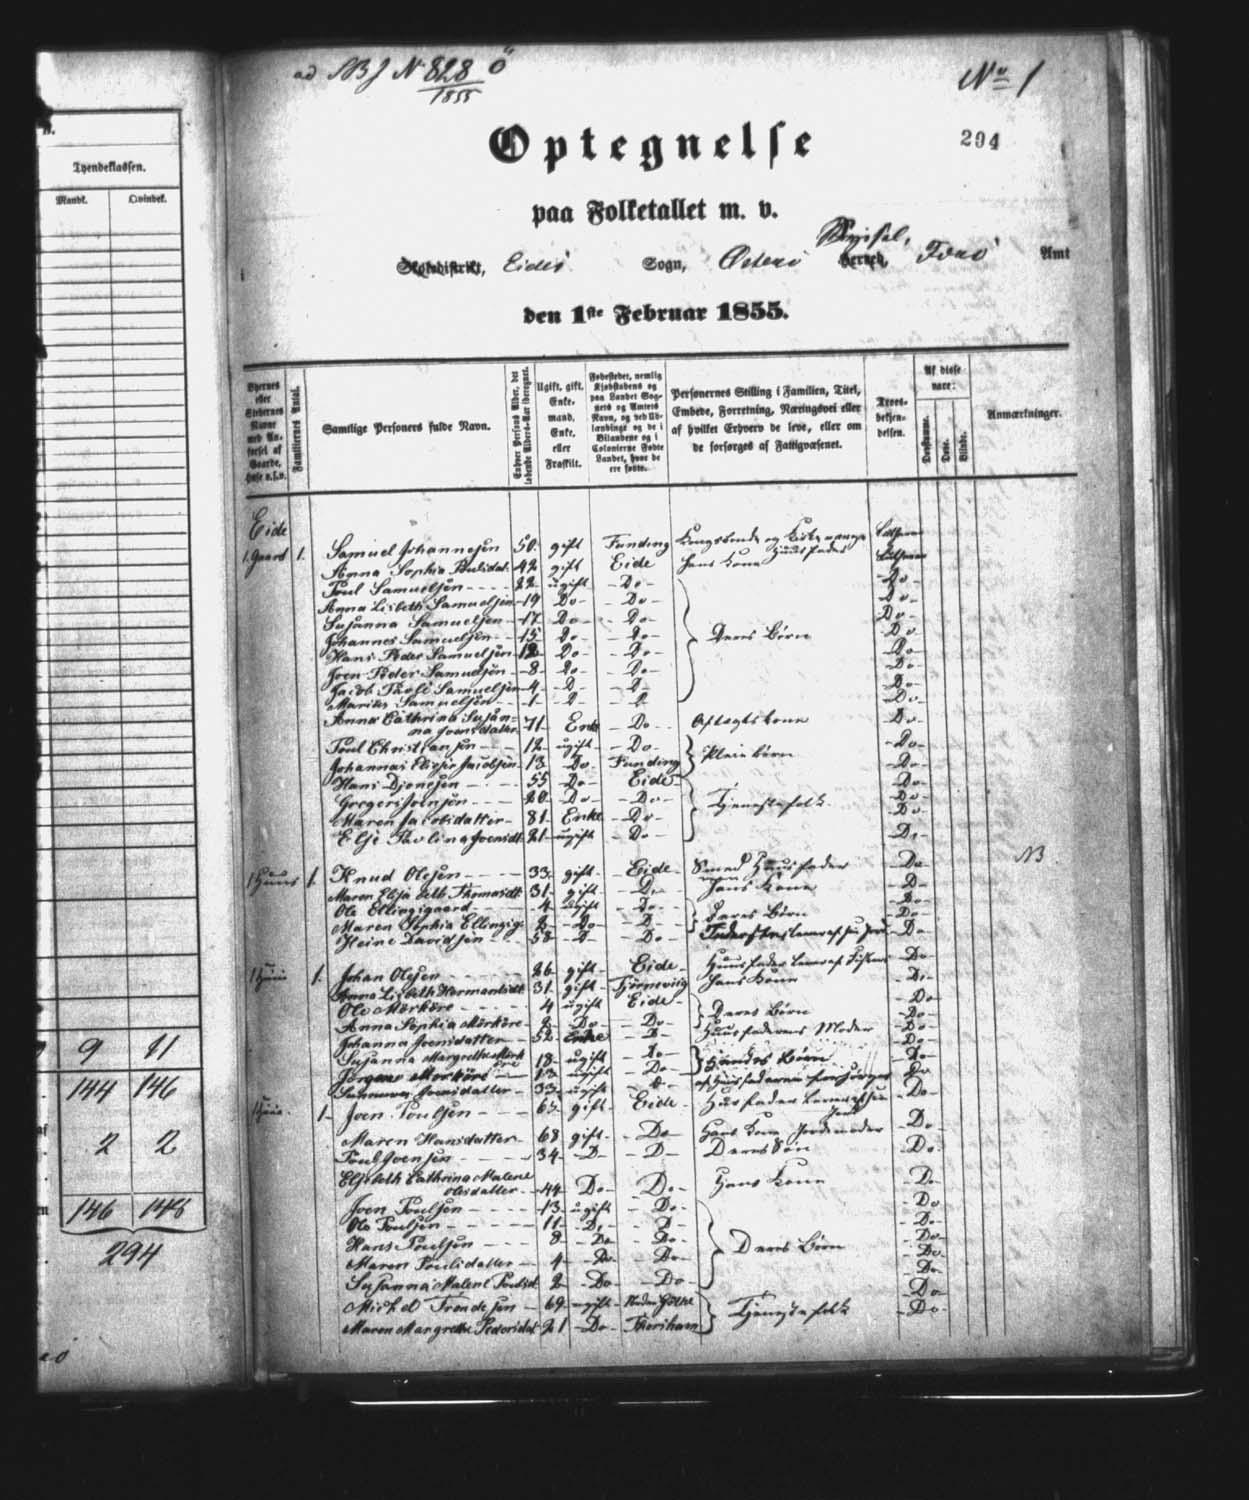 ad No 828
1855
No 1
294
Optegnelse
paa Folketallet m. v.
Skoledistrikt, Eide Sogn, Østerø Syssel, Herred, Færø Amt
den 1ste Februar 1855.
Tyendeklassen.
Mandk. Qvindek.
9 11
144 146
2 2
146 148
294
Byernes eller Stedernes Navne med Anførsel af Gaarde, Huse o.s.v.
Familiernes Antal.
Samtlige Personers fulde Navn.
Enhver Persons Alder, det løbende Alders-Aar iberegnet.
Ugift, gift, Enkemand, Enke, eller Fraskilt.
Fødestedet, nemlig Kjøbstadens og paa Landet Sognets og Amtets Navn, og ved Udlændinge og de i Bilandene og i Colonierne Fødte Landet, hvor de ere fødte.
Personernes Stilling i Familien, Titel, Embede, Forretning, Næringsvei eller af hvilket Erhverv de leve, eller om de forsørges af Fattigvæsenet.
Troesbekjendelsen.
Af disse vare:
Døvstumme. Døve. Blinde.
Anmærkninger.
Eide
1. Gaard 1. Samuel Johannesen 50. gift Funding Kongsbonde og Huusfader Luthersk
Anna Sophia Poulsdat. 42 gift Eide Hans Kone Luthersk
Poul Samuelsen 22 ugift Do Do
Anna Lisbeth Samuelsen 19 Do Do Do
Susanna Samuelsen 17 Do Do Do
Johannes Samuelsen 15 Do Do Deres Børn Do
Hans Peder Samuelsen 12 Do Do Do
Joen Peder Samuelsen 8 Do Do Do
Jacob Samuelsen 4 D D Do
Samuelsen 1 D D Do
Anna Cathrina Susanna Joensdatter 71 Enke Do Aftægtskone Do
Poul Christiansen 12 ugift Do Pleiebørn Do
Johannes Jacobsen 13 Do Funding Do
Hans Djonesen 55 Do Eide Do
Gregers Joensen 20 Do Do Tjenestefolk Do
Maren Jacobsdatter 81 Enke Do Do
Elsje Paulina Joensdt 21 ugift Do Do
1 Huus 1. Knud Olesen 33 gift Eide Smed Huusfader Do NB
Maren Thomasdt 31 gift Do Hans Kone D
Ole Ellingsgaard 4 ugift Do Deres Børn Do
Maren Sophia Ellingsg. 2 Do D Do
Heine Davidsen 58 D Do Do
1 Huus 1. Johan Olesen 26 gift Eide Huusfader lever af Fiskeri Do
Anna Lisbeth Hermansdt 31 gift Hans Kone Do
Ole Mörköre 4 ugift Eide Deres Børn Do
Anna Sophia Mörköre 2 Do Do Do
Johanna Joensdatter 52 Enke D Huusfaderens Moder Do
Susanna Margrethe Mörköre 18 ugift Do Hendes Børn Do
Jørgen Mörköre 13 ugift Do Do
Joensdatter 33 ugift Do
1 Huus 1 Joen Poulsen 65 gift Eide Huusfader lever af sin Jord Do
Maren Hansdatter 68 gift Do Hans Kone Jordemoder Do
Poul Joensen 34 D D Deres Søn Do
Elsebeth Cathrina Malene Olesdatter 44 Do Do Hans Kone Do
Joen Poulsen 13 ugift Do Do
Ole Poulsen 11 D D Do
Hans Poulsen 8 Do Do Deres Børn Do
Maren Poulsdatter 4 Do Do Do
Susanna Malene Poulsd 2 Do Do Do
Michel Trondesen 69 ugift Do
Maren Margrethe Pedersdat 21 Do Thorshavn Tjenestefolk Do